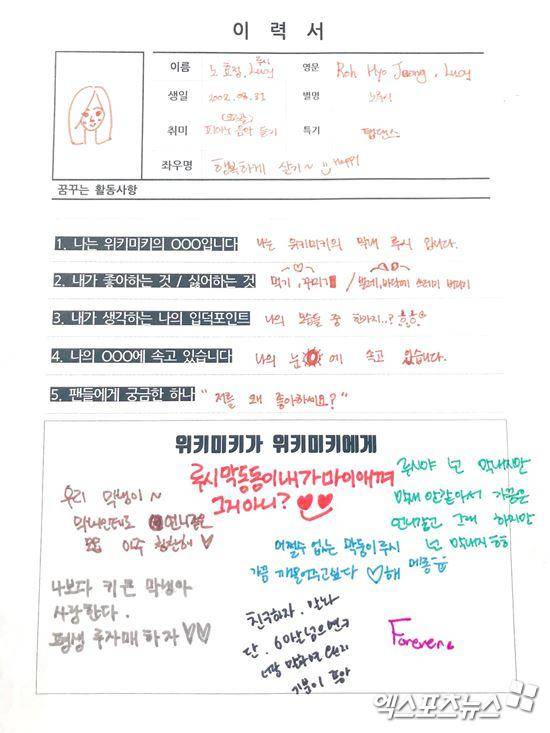 이 력 서
이름 노효정, 루시 Lucy 영문 Roh Hyo Jeong, Lucy
생일 2002.08.31 별명 노루시
취미 피아노 음악 듣기 특기 탭댄스
좌우명 행복하게 살기~ Happy
꿈꾸는 활동사항
1. 나는 위키미키의 OOO입니다 나는 위키미키의 막내 루시 입니다.
2. 내가 좋아하는 것 / 싫어하는 것 먹기, 꾸미기 / 벌레,
3. 내가 생각하는 나의 입덕포인트 나의 모든 것 중 한가지..?
4. 나의 OOO에 속고 있습니다 나의 눈에 속고 있습니다.
5. 팬들에게 궁금한 하나 "저를 왜 좋아하세요?"
위키미키가 위키미키에게
루시막둥둥이 내가 마이애껴
그거아니?
우리 막냉이~
막내인데도 언니같은
아주 힝힝해
루시야 넌 막내지만
막내 안같아서 가끔은
언니같고 그래 하지만
넌 막내지ㅎㅎ
어쩔수 없는 막둥이 루시
가끔 깨물어주고싶다 ♡해
나보다 키큰 막냉아
사랑한다.
평생 루자매하자♡♡
친구하자. 맞나
단,
기분이
Forever
엑스포츠뉴스